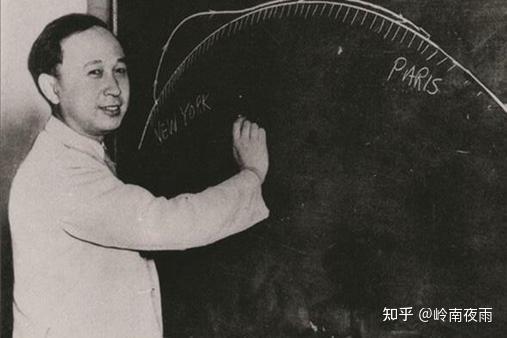 NEW YORK
PARIS
知乎 @岭南夜雨